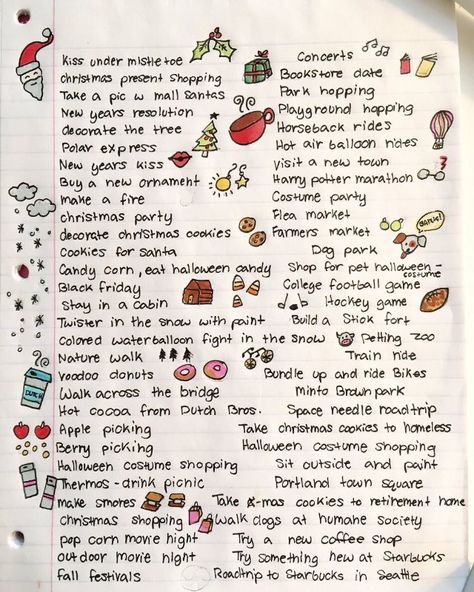 kiss under mistletoe
christmas present shopping
Take a pic w mall santas
New years resolution
decorate the tree
Polar express
New years kiss
Buy a new ornament
make a fire
christmas party
decorate christmas cookies
Cookies for santa
Candy corn, eat halloween candy
Black Friday
Stay in a cabin
Twister in the snow with paint
Colored waterballoon fight in the snow
Nature walk
voodoo donuts
Walk across the bridge
Hot cocoa from Dutch Bros.
Apple picking
Berry picking
Halloween costume shopping
Thermos-drink picnic
make smores
christmas shopping
pop corn movie night
outdoor movie night
fall festivals
Concerts
Bookstore date
Park hopping
Playground hopping
Horseback rides
Hot air balloon rides
Visit a new town
Harry potter marathon
Costume party
Flea market
Farmers market
BARK!
Dog park
Shop for pet halloween-
costume
College football game
Hockey game
Build a Stick fort
Petting zoo
Train ride
Bundle up and ride Bikes
Minto Brown park
Space needle roadtrip
Take christmas cookies to homeless
Halloween costume shopping
Sit outside and paint
Portland town square
Take X-mas cookies to retirement home
Walk dogs at humane society
Try a new coffee shop
Try something new at Starbucks
Roadtrip to Starbucks in Seattle
DUTCH